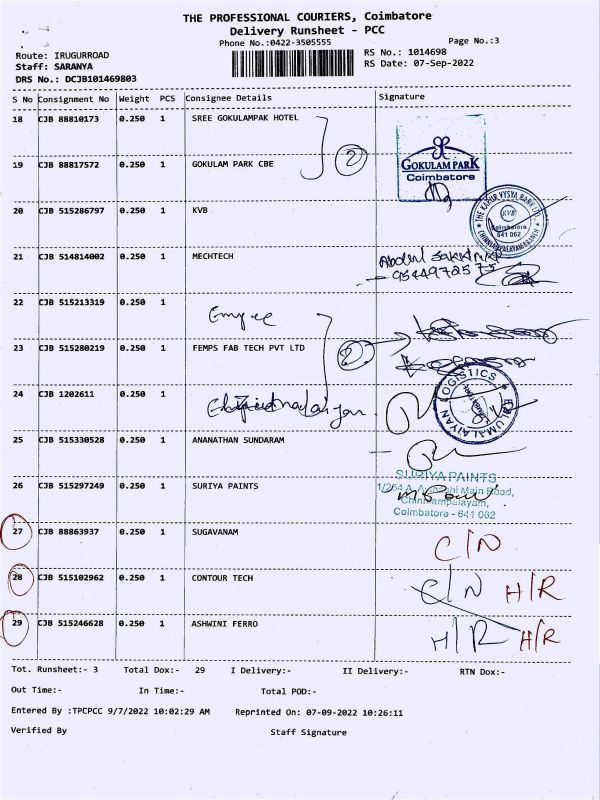 THE PROFESSIONAL COURIERS, Coimbatore
Delivery Runsheet - PCC
Phone No.:0422-3505555
Page No.:3
Route: IRUGURROAD
RS No.: 1014698
Staff: SARANYA
RS Date: 07-Sep-2022
DRS No.: DCJB101469803
S No Consignment No Weight PCS Consignee Details Signature
18 CJB 88810173 0.250 1 SREE GOKULAMPAK HOTEL
19 CJB 88817572 0.250 1 GOKULAM PARK CBE
2
GOKULAM PARK
Coimbatore
20 CJB 515286797 0.250 1 KVB
THE KARUR VYSYA BANK LTD
KVB
Coimbatore
641 062
21 CJB 514814002 0.250 1 MECHTECH
22 CJB 515213319 0.250 1
23 CJB 515280219 0.250 1 FEMPS FAB TECH PVT LTD
2
24 CJB 1202611 0.250 1
LOGISTICS
25 CJB 515330528 0.250 1 ANANATHAN SUNDARAM
26 CJB 515297249 0.250 1 SURIYA PAINTS
SURIYA PAINTS
Main Road,
Chinniampalayam,
Coimbatore - 641 062
27 CJB 88863937 0.250 1 SUGAVANAM C/N
28 CJB 515102962 0.250 1 CONTOUR TECH C/N H/R
29 CJB 515246628 0.250 1 ASHWINI FERRO H/R H/R
Tot. Runsheet:- 3 Total Dox:- 29 I Delivery:- II Delivery:- RTN Dox:-
Out Time:- In Time:- Total POD:-
Entered By :TPCPCC 9/7/2022 10:02:29 AM Reprinted On: 07-09-2022 10:26:11
Verified By Staff Signature